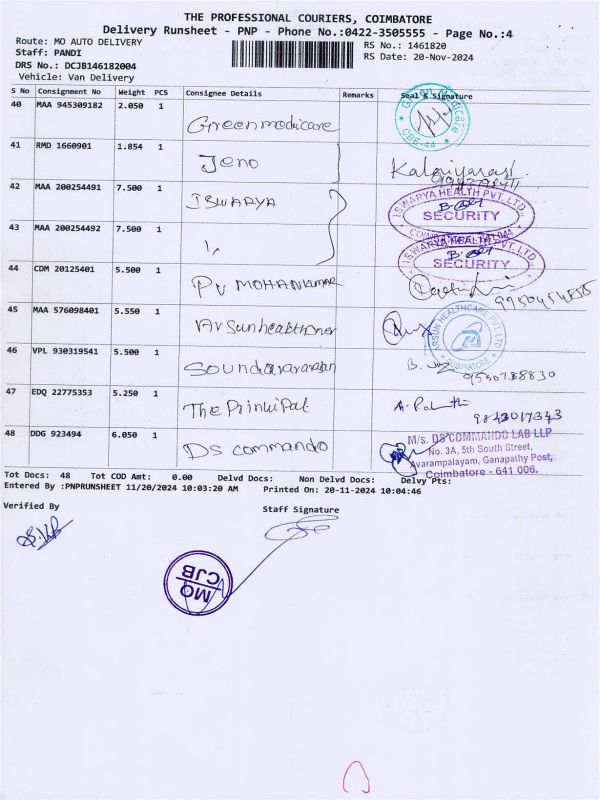 THE PROFESSIONAL COURIERS, COIMBATORE
Delivery Runsheet - PNP - Phone No.:0422-3505555 - Page No.:4
Route: MO AUTO DELIVERY
RS No.: 1461820
Staff: PANDI
RS Date: 20-Nov-2024
DRS No.: DCJB146182004
Vehicle: Van Delivery
S No Consignment No Weight PCS Consignee Details Remarks Seal & Signature
40 MAA 945309182 2.050 1 Greenmedicare
Green Medicare CBE-44
41 RMD 1660901 1.854 1 Jeno Kalaiyarasi
42 MAA 200254491 7.500 1 ISWARYA
ISWARYA HEALTH PVT. LTD. SECURITY
43 MAA 200254492 7.500 1
ISWARYA HEALTH PVT. LTD. SECURITY
44 CDM 20125401 5.500 1 PV MOHANKUMAR
45 MAA 576098401 5.550 1
ARSUN HEALTHCARE PVT LTD COIMBATORE
46 VPL 930319541 5.500 1 Soundararajan
47 EDQ 22775353 5.250 1 The Prinkipal
9843017343
48 DDG 923494 6.050 1 DS commando
M/s. DS COMMANDO LAB LLP
No. 3A, 5th South Street,
Avarampalayam, Ganapathy Post,
Coimbatore - 641 006.
Tot Docs: 48 Tot COD Amt: 0.00 Delvd Docs: Non Delvd Docs: Delvy Pts:
Entered By :PNPRUNSHEET 11/20/2024 10:03:20 AM Printed On: 20-11-2024 10:04:46
Verified By
Staff Signature
MO
CJB